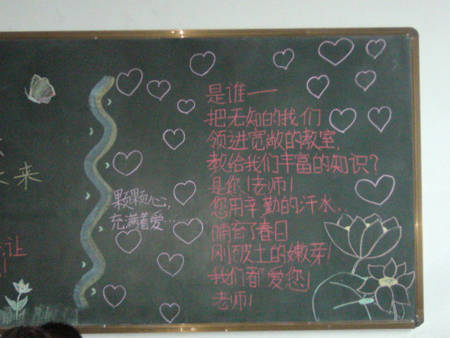 来
让
!
颗颗心,
充满着爱…
是谁一
把无知的我们
领进宽敞的教室,
教给我们丰富的知识?
是你!老师!
您用辛勤的汗水,
哺育了春日
刚破土的嫩芽!
我们都爱您!
老师!